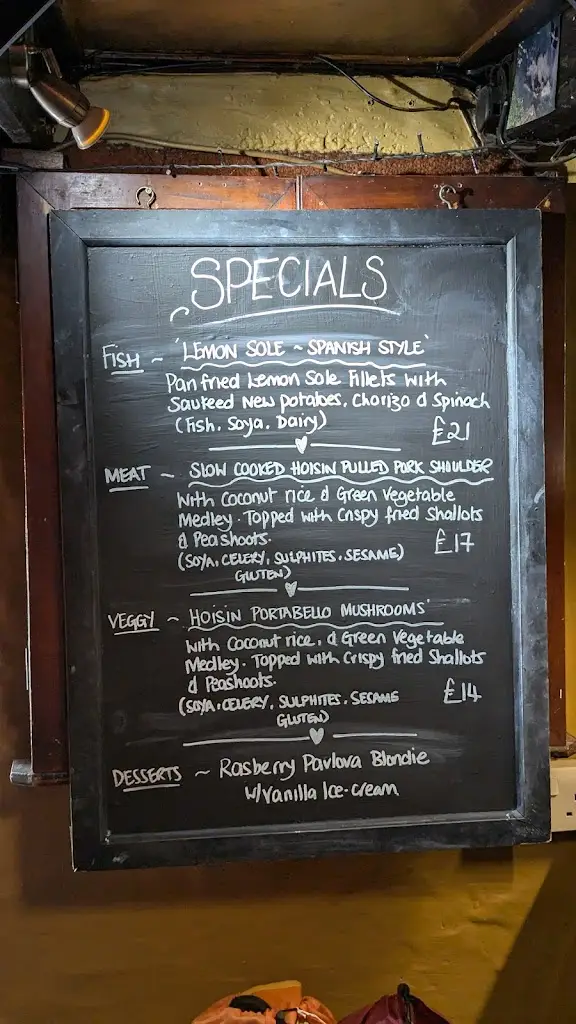 SPECIALS
FISH ~ 'LEMON SOLE ~ SPANISH STYLE'
Pan fried Lemon Sole Fillets with
Sauteed New potatoes, Chorizo & Spinach
(Fish, Soya, Dairy) £21
MEAT ~ SLOW COOKED HOISIN PULLED PORK SHOULDER
With Coconut rice & Green Vegetable
Medley. Topped with Crispy fried Shallots
& Peashoots.
(SOYA, CELERY, SULPHITES, SESAME) £17
GLUTEN)
VEGGY ~ HOISIN PORTABELLO MUSHROOMS'
with Coconut rice, & Green Vegetable
Medley. Topped with Crispy fried Shallots
& Peashoots. £14
(SOYA, CELERY, SULPHITES, SESAME
GLUTEN)
DESSERTS ~ Rasberry Pavlova Blondie
w/ Vanilla Ice-Cream